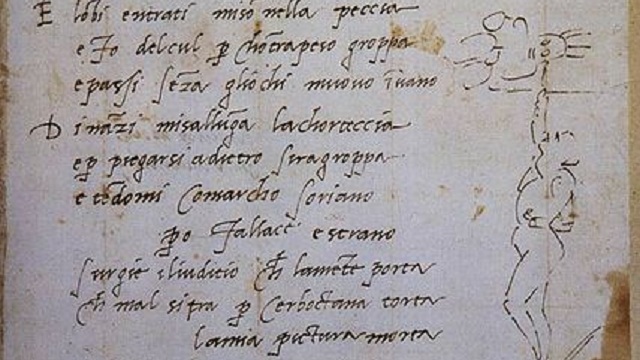 E lobi entrati miso nella peccia
e fo delcul p chõtrapeso groppa
e passi sẽza gliochi muovo ĩvano
Dinãzi misallũga lachorteccia
ep piegarsi adietro siragroppa
e tẽdomi Comarcho soriano
po fallace e strano
surgie iliuditio ch lamẽte porta
ch mal si tra p cerboctana torta
lamia pictura morta